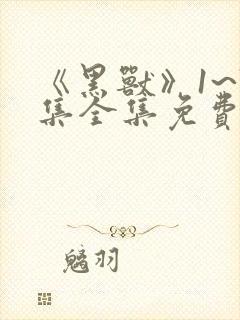 《黑獸》1~
集全集免費
魑羽